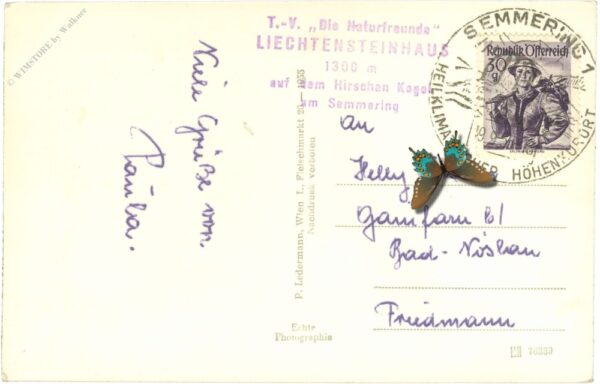 © WIMSTORE by Walkner
Viele Grüße von
Paula.
T.-V. „Die Naturfreunde"
LIECHTENSTEINHAUS
1300 m
auf dem Hirschen Kogel
am Semmering
SEMMERING 1
HÖHENKURORT
Republik Österreich
30 g
P. Ledermann, Wien I., Fleischmarkt 20 — 1955
Nachdruck verboten
Echte
Photographie
An
Helly
Gainfarn 61
Bad-Vöslau
Friedmann
76339